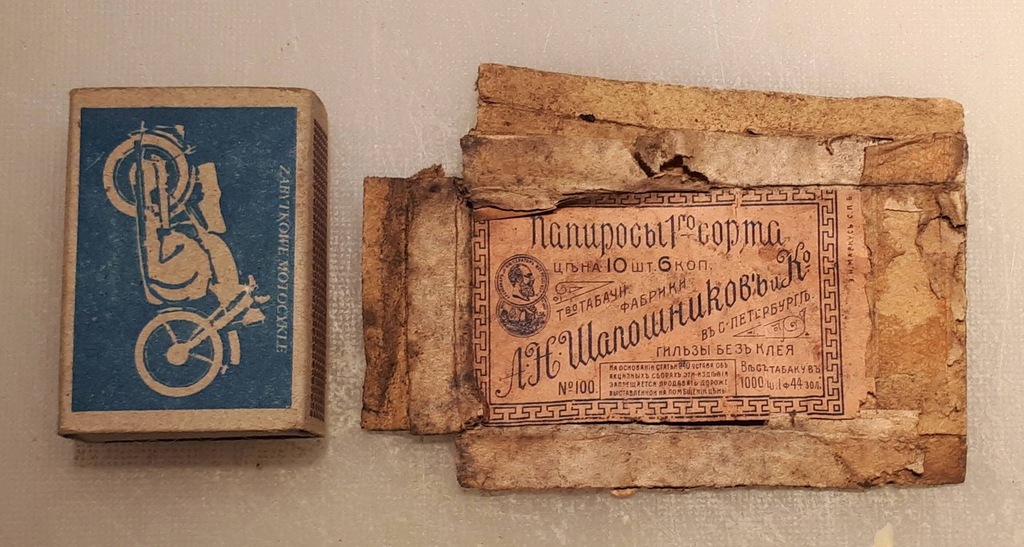 ZABYTKOWE MOTOCYKLE
Папиросы 1го сорта
ЦѢНА 10 ШТ. 6 КОП.
Тво ТАБАЧН.
ФАБРИКИ
А.Н. Шапошниковъ и Ко
ВЪ С-ПЕТЕРБУРГѢ.
ГИЛЬЗЫ БЕЗЪ КЛЕЯ
№ 100.
НА ОСНОВАНІИ СТАТЬИ УСТАВА ОБЪ
АКЦИЗНЫХЪ СБОРАХЪ ЭТИ ИЗДѢЛІЯ
ЗАПРЕЩАЕТСЯ ПРОДАВАТЬ ДОРОЖЕ
ВЫСТАВЛЕННОЙ НА ПОМѢЩЕНІИ ЦѢНЫ
ВѢСЪ ТАБАКУ ВЪ
1000 Ш. 1 Ф 44 ЗОЛ.
МАРКУСЪ С.П.Б.